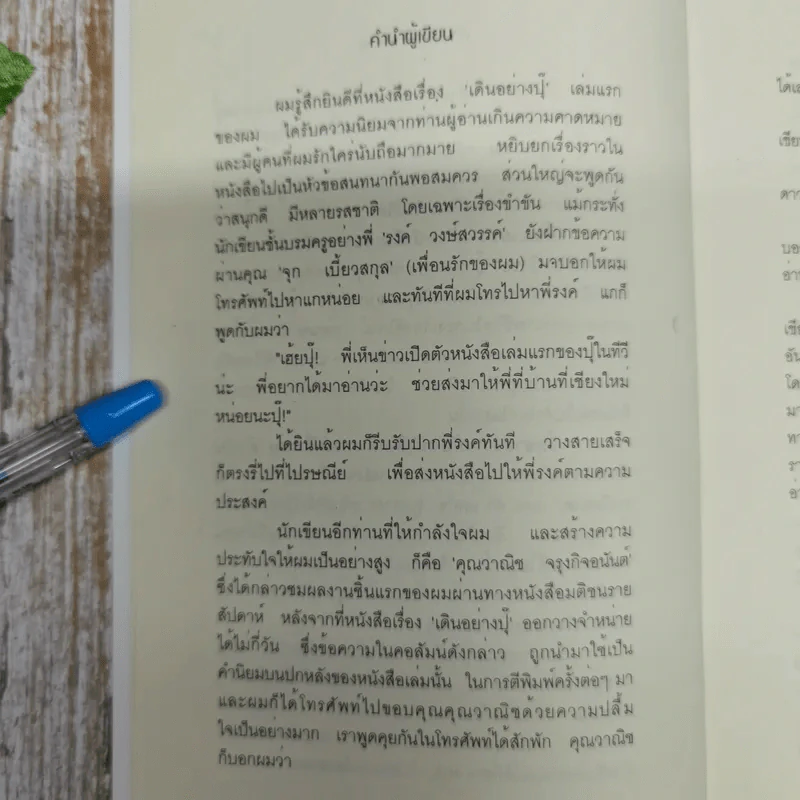 คำนำผู้เขียน
ผมรู้สึกยินดีที่หนังสือเรื่อง 'เดินอย่างปุ๊' เล่มแรก
ของผม ได้รับความนิยมจากท่านผู้อ่านเกินความคาดหมาย
และมีผู้คนที่ผมรักใคร่นับถือมากมาย หยิบยกเรื่องราวใน
หนังสือไปเป็นหัวข้อสนทนากันพอสมควร ส่วนใหญ่จะพูดกัน
ว่าสนุกดี มีหลายรสชาติ โดยเฉพาะเรื่องขำขัน แม้กระทั่ง
นักเขียนชั้นบรมครูอย่างพี่ 'รงค์ วงษ์สวรรค์' ยังฝากข้อความ
ผ่านคุณ 'จุก เบี้ยวสกุล' (เพื่อนรักของผม) มาบอกให้ผม
โทรศัพท์ไปหาแกหน่อย และทันทีที่ผมโทรไปหาพี่รงค์ แกก็
พูดกับผมว่า
"เฮ้ยปุ๊! พี่เห็นข่าวเปิดตัวหนังสือเล่มแรกของปุ๊ในทีวี
น่ะ พี่อยากได้มาอ่านว่ะ ช่วยส่งมาให้พี่ที่บ้านที่เชียงใหม่
หน่อยนะปุ๊!"
ได้ยินแล้วผมก็รีบรับปากพี่รงค์ทันที วางสายเสร็จ
ก็ตรงรี่ไปที่ไปรษณีย์ เพื่อส่งหนังสือไปให้พี่รงค์ตามความ
ประสงค์
นักเขียนอีกท่านที่ให้กำลังใจผม และสร้างความ
ประทับใจให้ผมเป็นอย่างสูง ก็คือ 'คุณวาณิช จรุงกิจอนันต์'
ซึ่งได้กล่าวชมผลงานชิ้นแรกของผมผ่านทางหนังสือมติชนราย
สัปดาห์ หลังจากที่หนังสือเรื่อง 'เดินอย่างปุ๊' ออกวางจำหน่าย
ได้ไม่กี่วัน ซึ่งข้อความในคอลัมน์ดังกล่าว ถูกนำมาใช้เป็น
คำนิยมบนปกหลังของหนังสือเล่มนั้น ในการตีพิมพ์ครั้งต่อๆ มา
และผมก็ได้โทรศัพท์ไปขอบคุณคุณวาณิชด้วยความปลื้ม
ใจเป็นอย่างมาก เราพูดคุยกันในโทรศัพท์ได้สักพัก คุณวาณิช
ก็บอกผมว่า